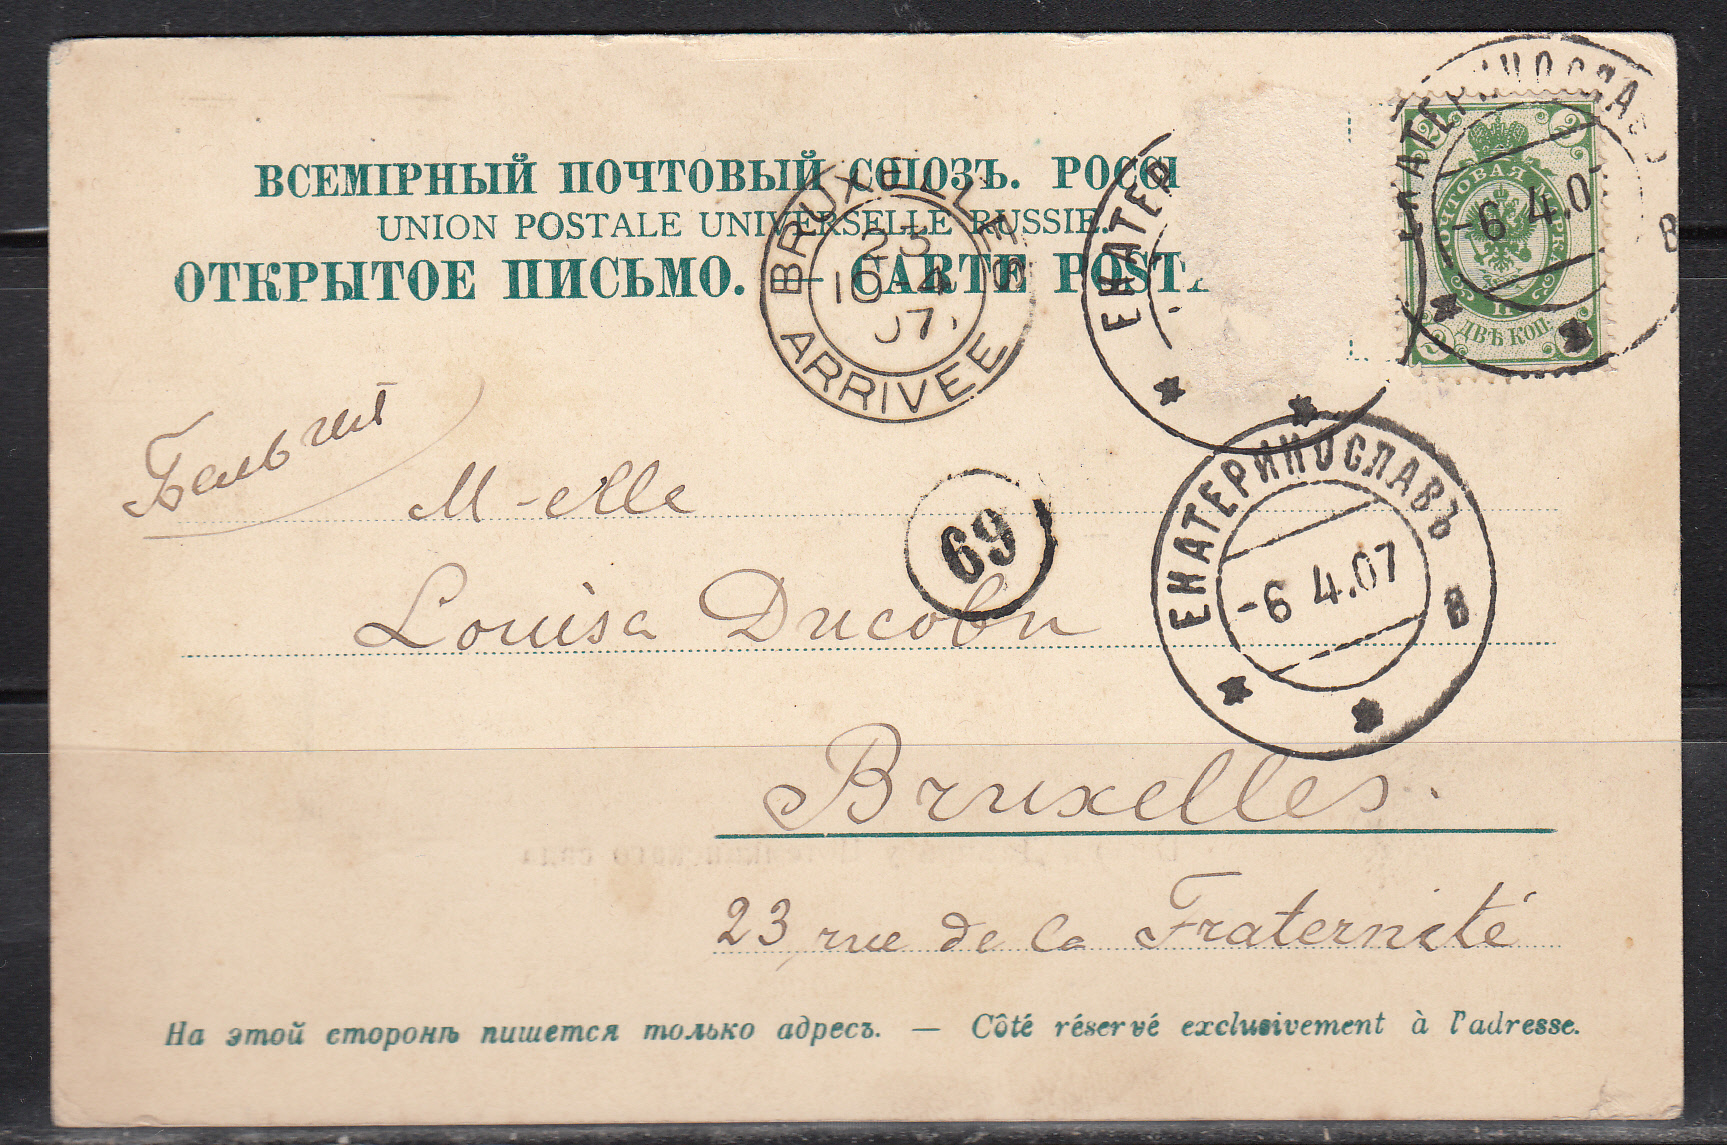 ВСЕМІРНЫЙ ПОЧТОВЫЙ СОЮЗЪ. РОССІ
UNION POSTALE UNIVERSELLE RUSSIE.
ОТКРЫТОЕ ПИСЬМО. — CARTE POSTA
BRUXELLES
23
10-4
07
ARRIVEE
ЕКАТЕР
ЕКАТЕРИНОСЛАВЪ
-6 4.0
В
ПОЧТОВАЯ МАРКА
2 КОП.
ДВѢ КОП.
Бельгия
M-elle
69
ЕКАТЕРИНОСЛАВЪ
-6 4.07
В
Louisa
Bruxelles.
23, rue de la Fraternité
На этой сторонѣ пишется только адресъ. — Côté réservé exclusivement à l'adresse.